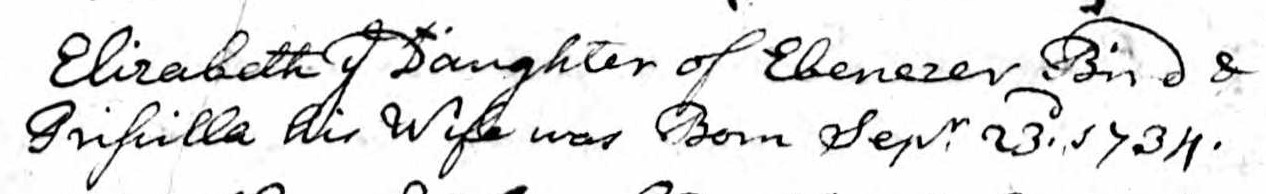 Elizabeth yᵉ Daughter of Ebenezer Bird &
Prissilla his Wife was Born Sepʳ 23ᵈ. 1734.